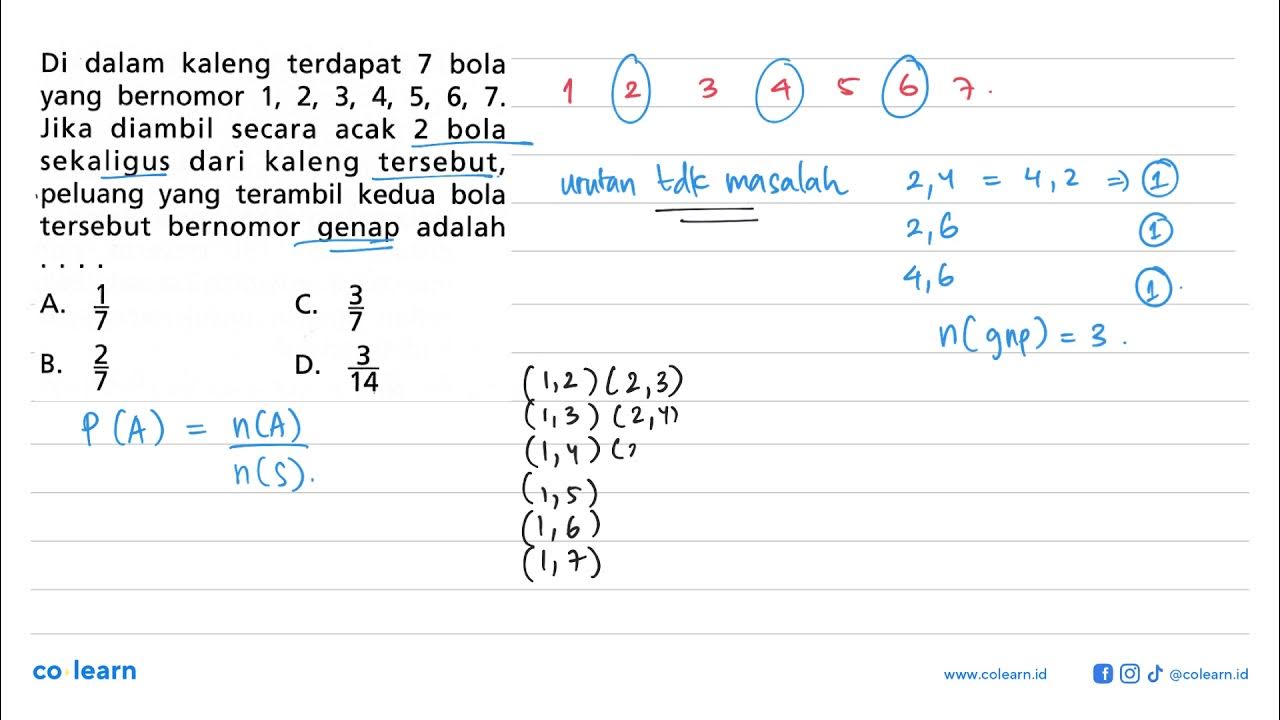 Di dalam kaleng terdapat 7 bola
yang bernomor 1, 2, 3, 4, 5, 6, 7.
Jika diambil secara acak 2 bola
sekaligus dari kaleng tersebut,
peluang yang terambil kedua bola
tersebut bernomor genap adalah
. . . .
A. 1/7
C. 3/7
B. 2/7
D. 3/14
P(A) = n(A)/n(S).
1 2 3 4 5 6 7.
urutan tdk masalah
2,4 = 4,2 ⇒ 1
2,6 1
4,6 1.
n(gnp) = 3.
(1,2) (2,3)
(1,3) (2,4)
(1,4) (2
(1,5)
(1,6)
(1,7)
co learn
www.colearn.id
@colearn.id